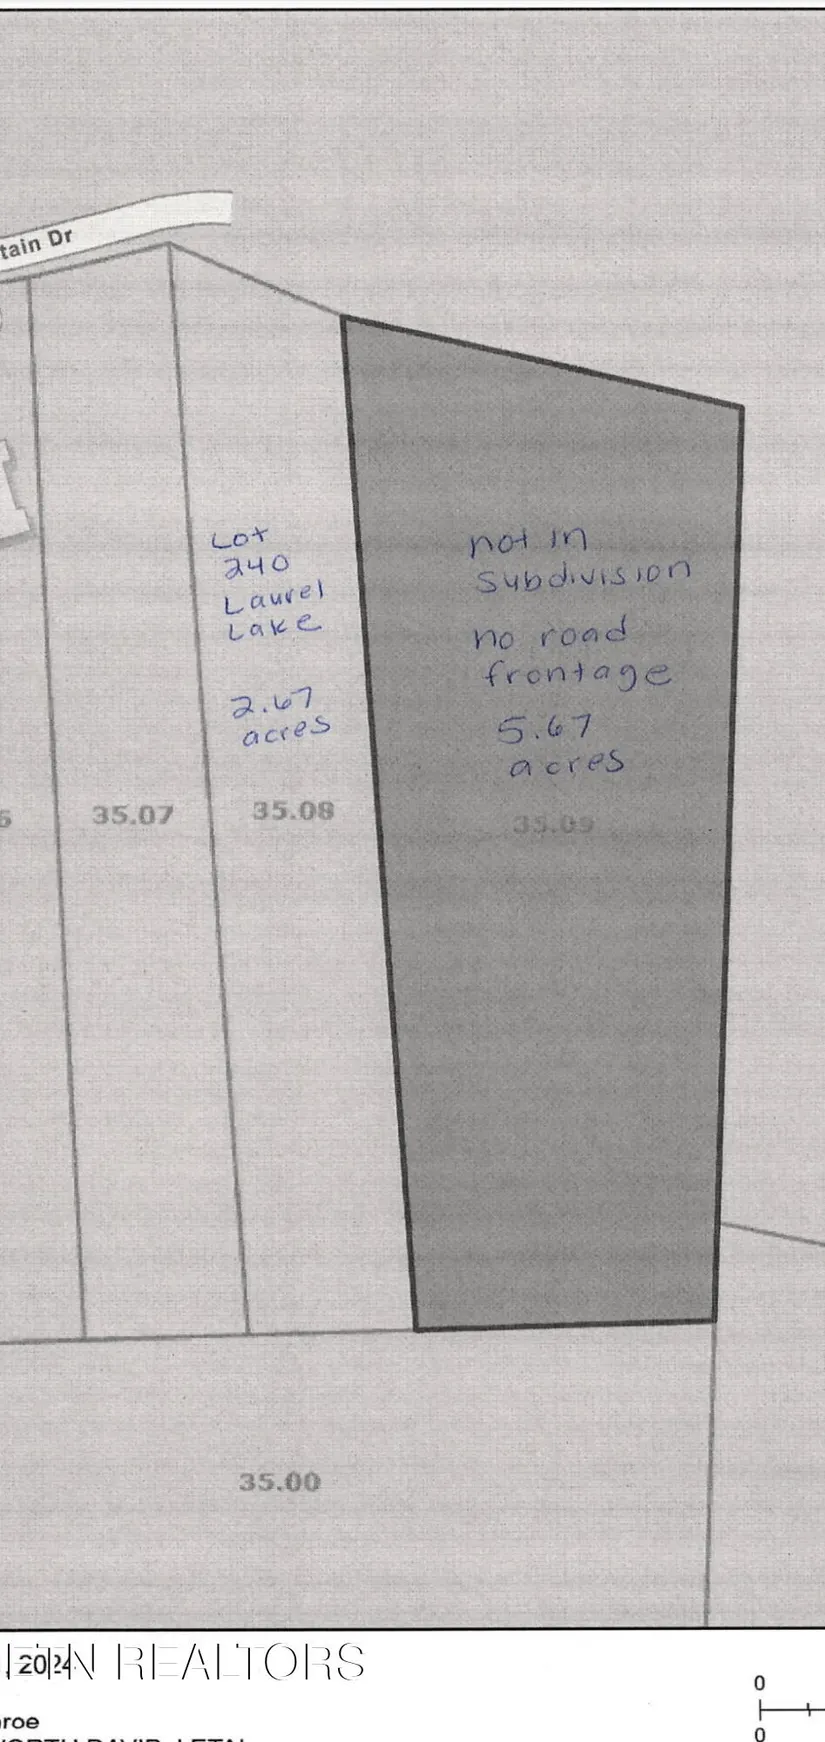 tain Dr
Lot
240
Laurel
Lake
2.67
acres
not in
Subdivision
no road
frontage
5.67
acres
35.07
35.08
35.09
35.00
2024
ETN REALTORS
0
0
roe